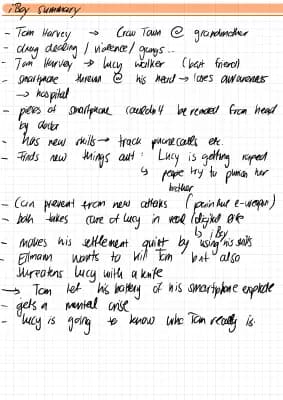 iBoy summary
- Tom Harvey → Crow Town @ grandmother
- drug dealing / violence / gangs..
- Tom Harvey → Lucy Walker (best friend)
- smartphone thrown @ his head → loses awareness
→ hospital
- pieces of smartphone couldn't be removed from head
by doctor
- has new skills → track phonecalls etc.
- Finds new things out: Lucy is getting raped
↳ people try to punish her
brother
- Can prevent from new attacks ( e-weapon)
- both takes care of Lucy in real / digital life
↳ iBoy
- makes his settlement quiet by using his skills
- Ellmann wants to kill Tom but also
threatens Lucy with a knife
→ Tom let his battery of his smartphone explode
- gets a mental crise
- Lucy is going to know who Tom really is.